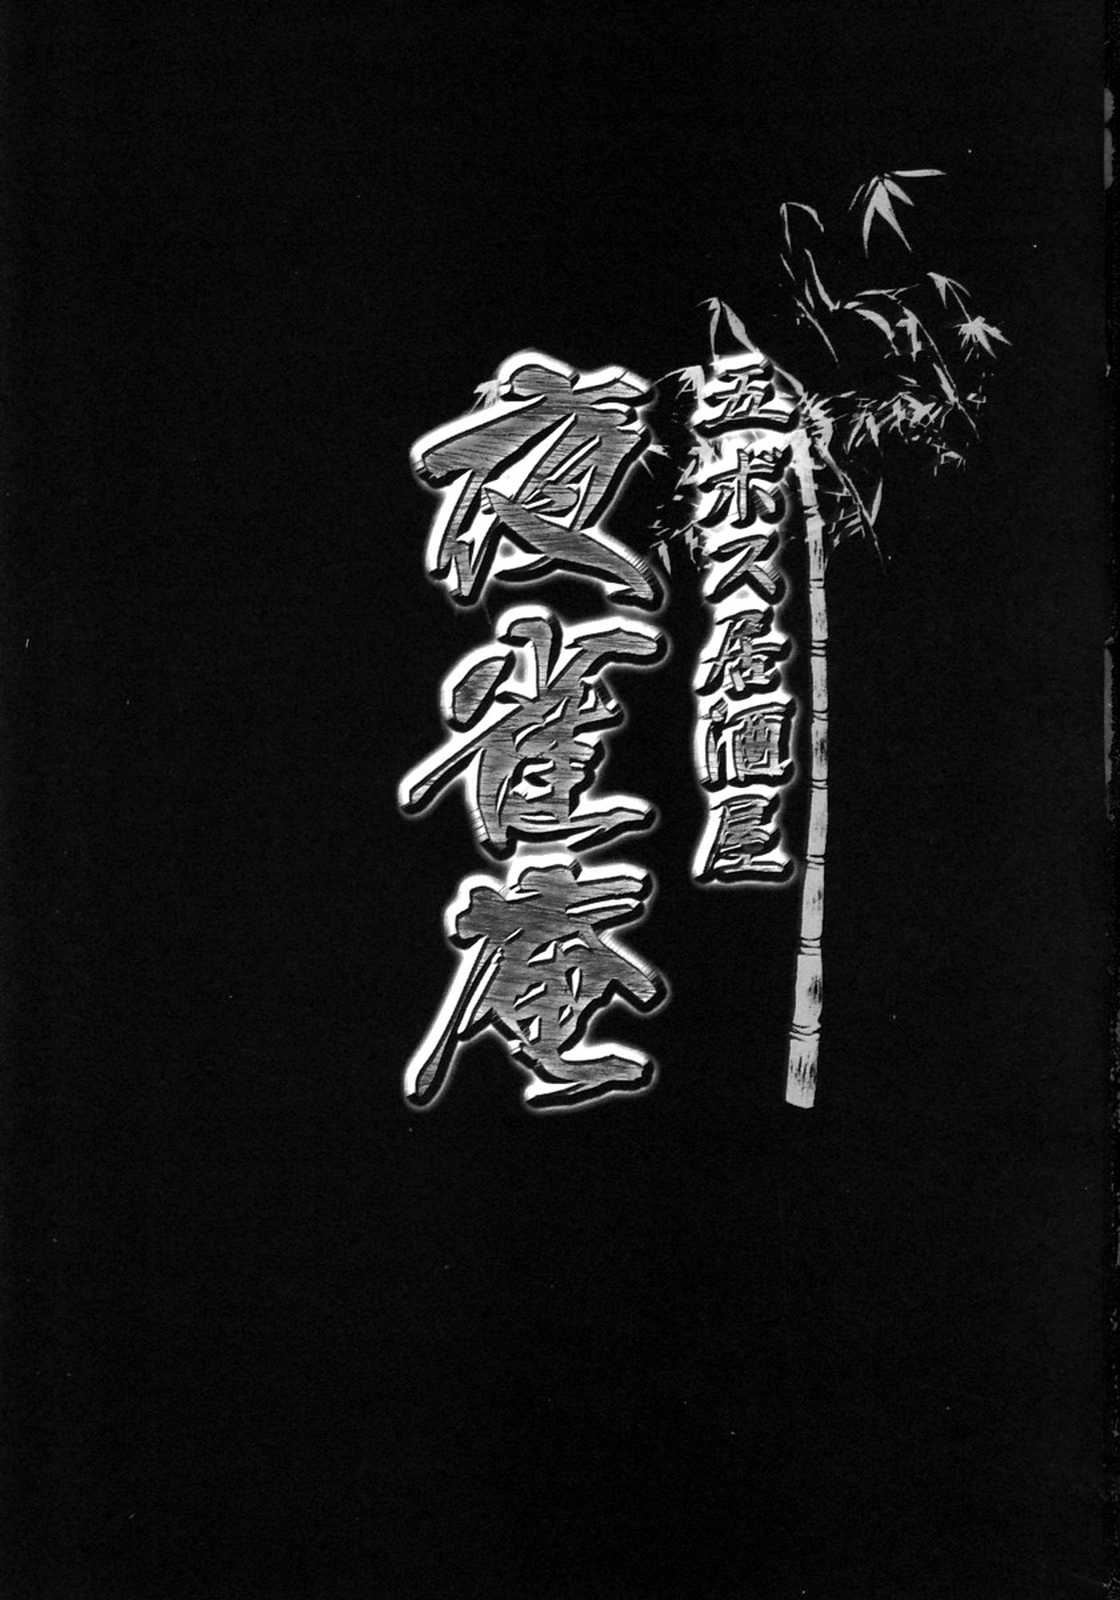 五ボス居酒屋
夜雀庵